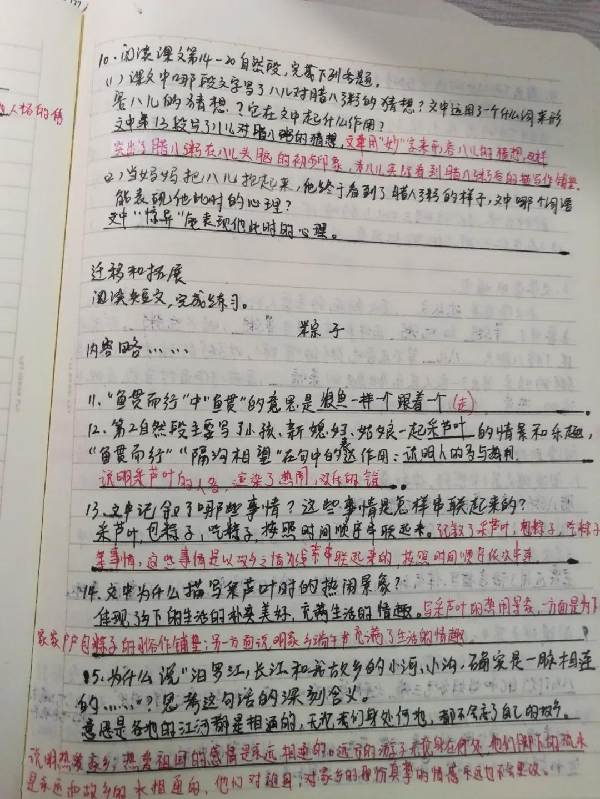 10.阅读课文第14-20自然段,完成下列各题。
(1)课文中哪段文字写了八儿对腊八粥的猜想?文中运用了一个什么词来形
容八儿的猜想?它在文中起什么作用?
文中第13段写了八儿对腊八粥的猜想,文章用"妙"字来形容八儿的猜想,这样
突出了腊八粥在八儿头脑的初步印象,为八儿实际看到腊八粥后的描写作铺垫。
(2)当妈妈把八儿抱起来,他终于看到了腊八粥的样子,文中哪个词语
能表现他此时的心理?
文中"惊异"能表现他此时的心理。
迁移和拓展
阅读短文,完成练习。
粽子
内容略……
11."鱼贯而行"中"鱼贯"的意思是像鱼一样一个跟着一个(走)
12.第2自然段主要写了小孩、新媳妇、姑娘一起采芦叶的情景和乐趣,
"鱼贯而行""隔沟相望"在句中的作用:说明人的多与热闹.
说明采芦叶的人多,渲染了热闹、欢乐的
13.文中记叙了哪些事情?这些事情是怎样串联起来的?
采芦叶,包粽子,吃粽子,按照时间顺序串联起来。记叙了采芦叶,包粽子,吃粽子
等事情,这些事情是以故乡之情为线索串联起来的,按照时间顺序依次
14.文中为什么描写采芦叶时的热闹景象?
体现乡下的生活的朴实美好,充满生活的情趣。写采芦叶的热闹景象,一方面是为了
家家户户包粽子的习俗作铺垫;另一方面说明家乡端午节充满了生活的情趣
15.为什么说"汨罗江,长江和我故乡的小河、小沟,确实是一脉相连
的……"?思考这句话的深刻含义。
意思是各地的江河都是相通的,无论我们身处何地,都不会忘了自己的故乡。
说明热爱家乡,热爱祖国的感情是永远相连的。远方的游子无论身在何处,他们脚下的流水
是永远和故乡的水相通的,他们对祖国,对家乡的那份真挚的情感永远也不会更改。